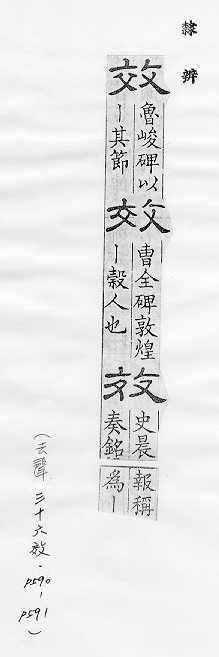 隸辨
效
魯峻碑以
｜其節
效
曹全碑敦煌
｜穀人也
效
史晨
奏銘
報稱
為｜
（去聲 三十六效．p590-p591）